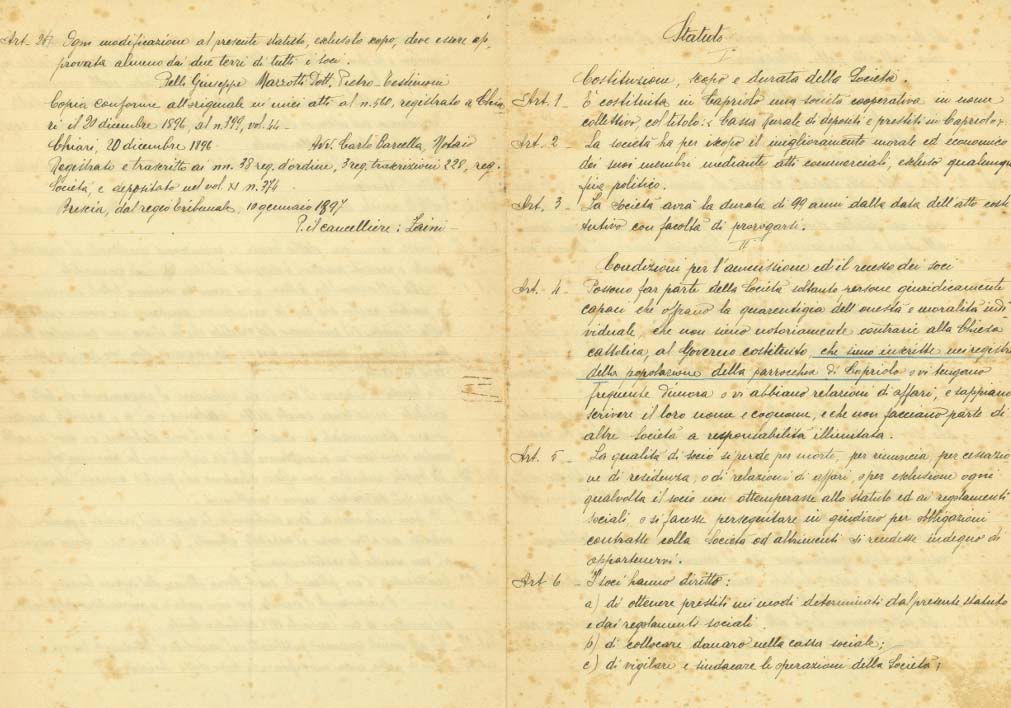 Art. 26. Ogni modificazione al presente statuto, escluso lo scopo, deve essere ap,
provata almeno dai due terzi di tutti i soci.
Pelli Giuseppe Mazzotti Dott. Pietro testimoni
Copia conforme all'originale in miei atti al n. 560, registrato a Chia,
ri il 20 dicembre 1896, al n. 399, vol. 44 -
Chiari, 20 dicembre 1896 - Avv. Carlo Barcella, Notaio
Registrato e trascritto ai nn. 38 reg. d'ordine, 3 reg. trascrizioni 228, reg.
Società, e depositato nel vol. XI n. 374 -
Brescia, dal regio tribunale, 10 gennaio 1897
P. il cancelliere: Zaini -
Statuto
I
Costituzione, scopo e durata della Società.
Art. 1 - È costituita in Capriolo una società cooperativa in nome
collettivo, col titolo: "Cassa rurale di depositi e prestiti in Capriolo".
Art. 2 - La società ha per iscopo il miglioramento morale ed economico
dei suoi membri mediante atti commerciali, escluso qualunque
fine politico.
Art. 3 - La Società avrà la durata di 99 anni dalla data dell'atto costi
tutivo con facoltà di prorogarsi.
II
Condizioni per l'ammissione ed il recesso dei soci
Art. 4 - Possono far parte della Società soltanto persone giuridicamente
capaci che offrano la guarentigia dell'onestà e moralità indi
viduale, che non siano notoriamente contrarie alla Chiesa
cattolica, al Governo costituito, che siano inscritte nei registri
della popolazione della parrocchia di Capriolo o vi tengano
frequente dimora o vi abbiano relazioni di affari, e sappiano
scrivere il loro nome e cognome, e che non facciano parte di
altre società a responsabilità illimitata.
Art. 5 - La qualità di socio si perde per morte, per rinuncia, per cessazio
ne di residenza, o di relazioni di affari, o per esclusione ogni
qualvolta il socio non ottemperasse allo statuto ed ai regolamenti
sociali, o si facesse perseguitare in giudizio per obbligazioni
contratte colla Società od altrimenti si rendesse indegno di
appartenervi.
Art 6 - I soci hanno diritto:
a) di ottenere prestiti nei modi determinati dal presente statuto
e dai regolamenti sociali.
b) di collocare danaro nella cassa sociale;
c) di vigilare e sindacare le operazioni della Società;